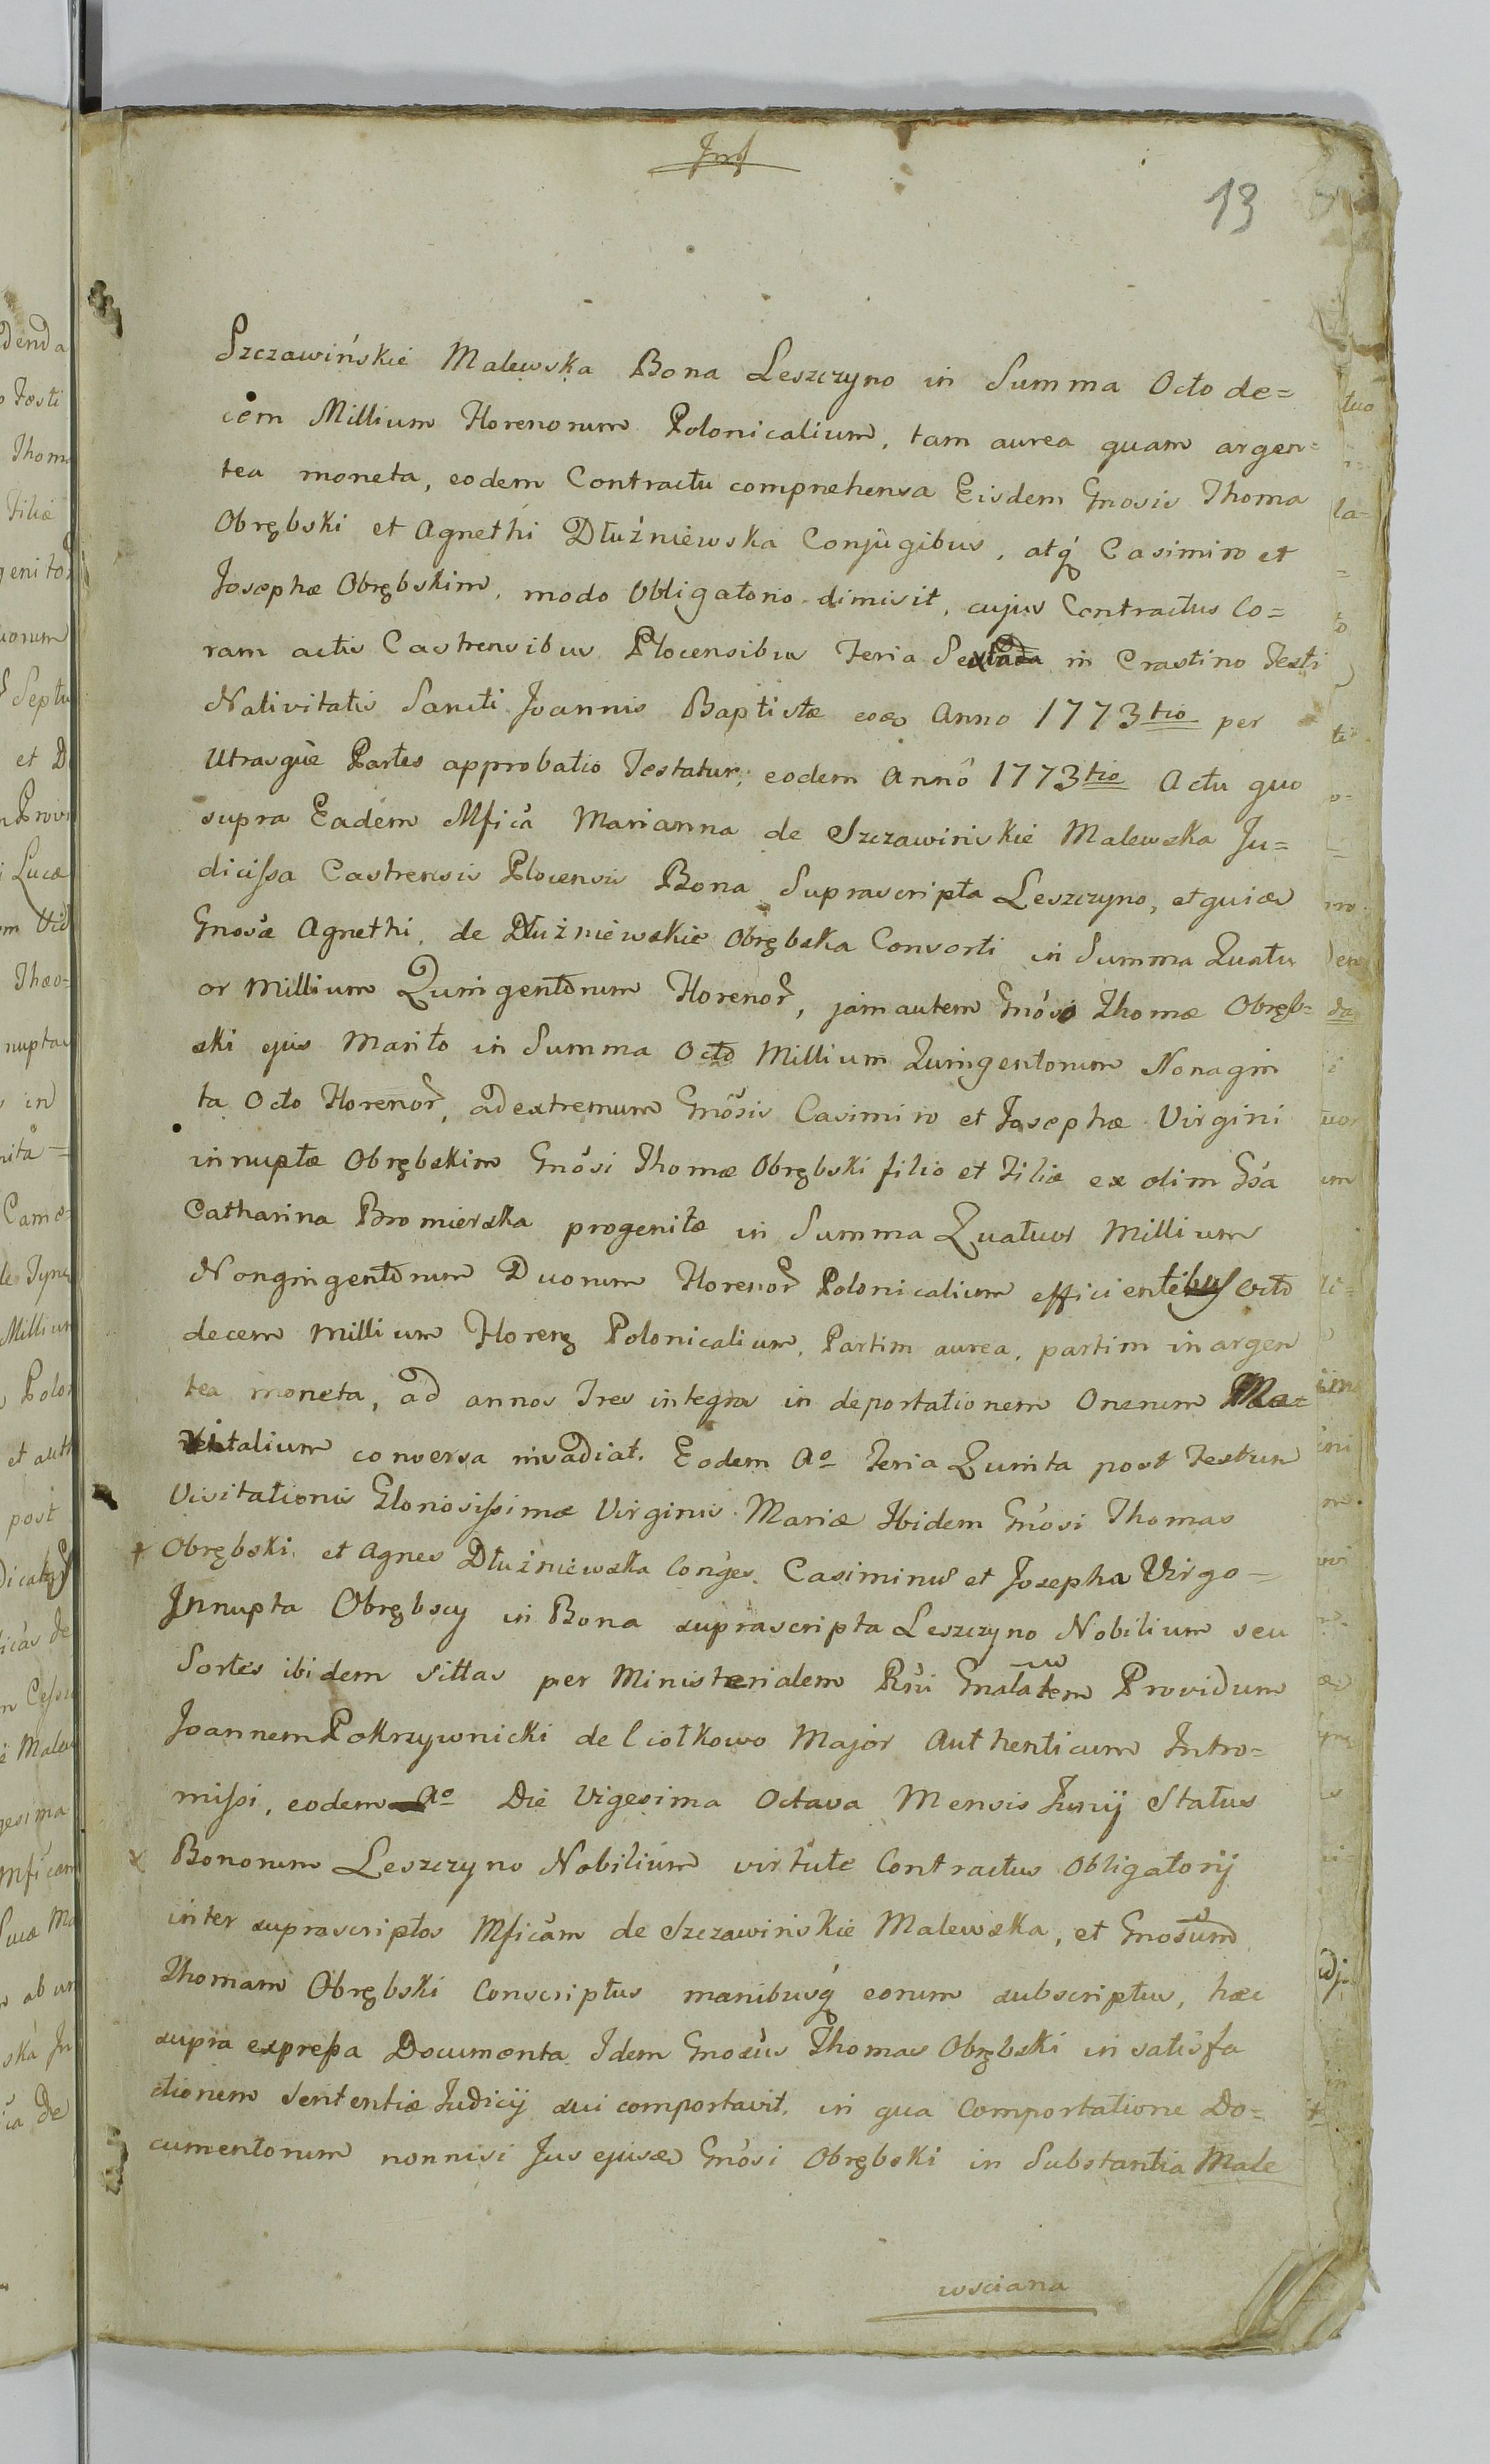 13
Szczawińskie Malewska Bona Leszczyno in Summa Octo de=
cem Millium Florenorum Polonicalium, tam aurea quam argen=
tea moneta, eodem Contractu comprehensa Eisdem Gnosis Thoma
Obrębski et Agnethi Dłużniewska Conjugibus, atq́ Casimiro et
Josephæ Obrębskim, modo Obligatorio dimisit, cujus Contractus Co=
ram actis Castrensibus Plocensibus Feria in Crastino Festi
Nativitatis Sancti Joannis Baptistæ Anno 1773tio per
Utrasque Partes approbatio Testatur; eodem Anno 1773tio Actu quo
supra Eadem Mfica Marianna de Szczawińskie Malewska Ju=
dicissa Castrensis Plocensis Bona Suprascripta Leszczyno, et quidem
Gnosæ Agnethi, de Dłużniewskie Obrębska Consorti in Summa Quatu
or Millium Quingentorum Florenor, jam autem Gnoso Thomæ Obręb=
ski ejus Marito in Summa Octo Millium Quingentorum Nonagin
ta Octo Florenor, ad extremum Gnosis Casimiro et Josephæ Virgini
innuptæ Obrębskim Gnosi Thomæ Obrębski filio et Filiæ ex olim Gsa
Catharina Bromierska progenitæ in Summa Quatuor Millium
Nongingentorum Duorum Florenor Polonicalium efficientibus Octo
decem Millium Floren Polonicalium, Partim aurea, partim in argen
tea moneta, ad annos Tres integros in deportationem Onerum
conversa invadiat. Eodem Ao Feria Quinta post Festum
Visitationis Gloriosissimæ Virginis Mariæ Ibidem Gnosi Thomas
Obrębski, et Agnes Dłużniewska Conges. Casimirus et Josepha Virgo=
Innupta Obrębscy in Bona suprascripta Leszczyno Nobilium seu
Sortes ibidem sittas per Ministerialem Rni Providum
Joannem Pokrzywnicki de Ciołkowo Major Authenticum Intro=
missi, eodem Ao Die Vigesima Octava Mensis Junij Status
Bonorum Leszczyno Nobilium virtute Contractus Obligatorij
inter suprascriptos Mficam de Szczawińskie Malewska, et Gnosum
Thomam Obrębski Conscriptus manibusq́ eorum subscriptus, hæc
supra expressa Documenta Idem Gnosus Thomas Obrębski in satisfa
ctionem Sententiæ Judicij sui comportavit, in qua Comportatione Do=
cumentorum nonnisi Jus ejusdem Gnosi Obrębski in Substantia Male
wsciana